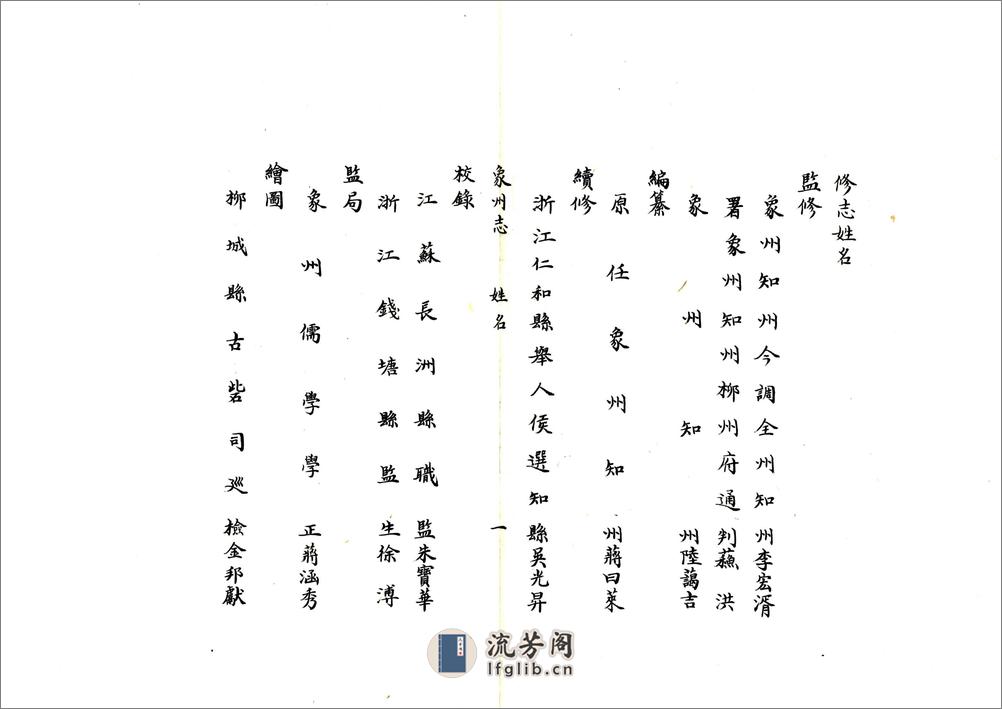 修志姓名
監修
象州知州今調全州知州李宏湑
署象州知州柳州府通判蘓洪
象州知州陸藹吉
編纂
原任象州知州蔣曰萊
續修
浙江仁和縣舉人侯選知縣吳光昇
象州志 姓名 一
校錄
江蘇長洲縣職監朱寶華
浙江錢塘縣監生徐溥
監局
象州儒學學正蔣涵秀
繪圖
柳城縣古砦司巡檢金邦獻
流芳阁
lfglib.cn